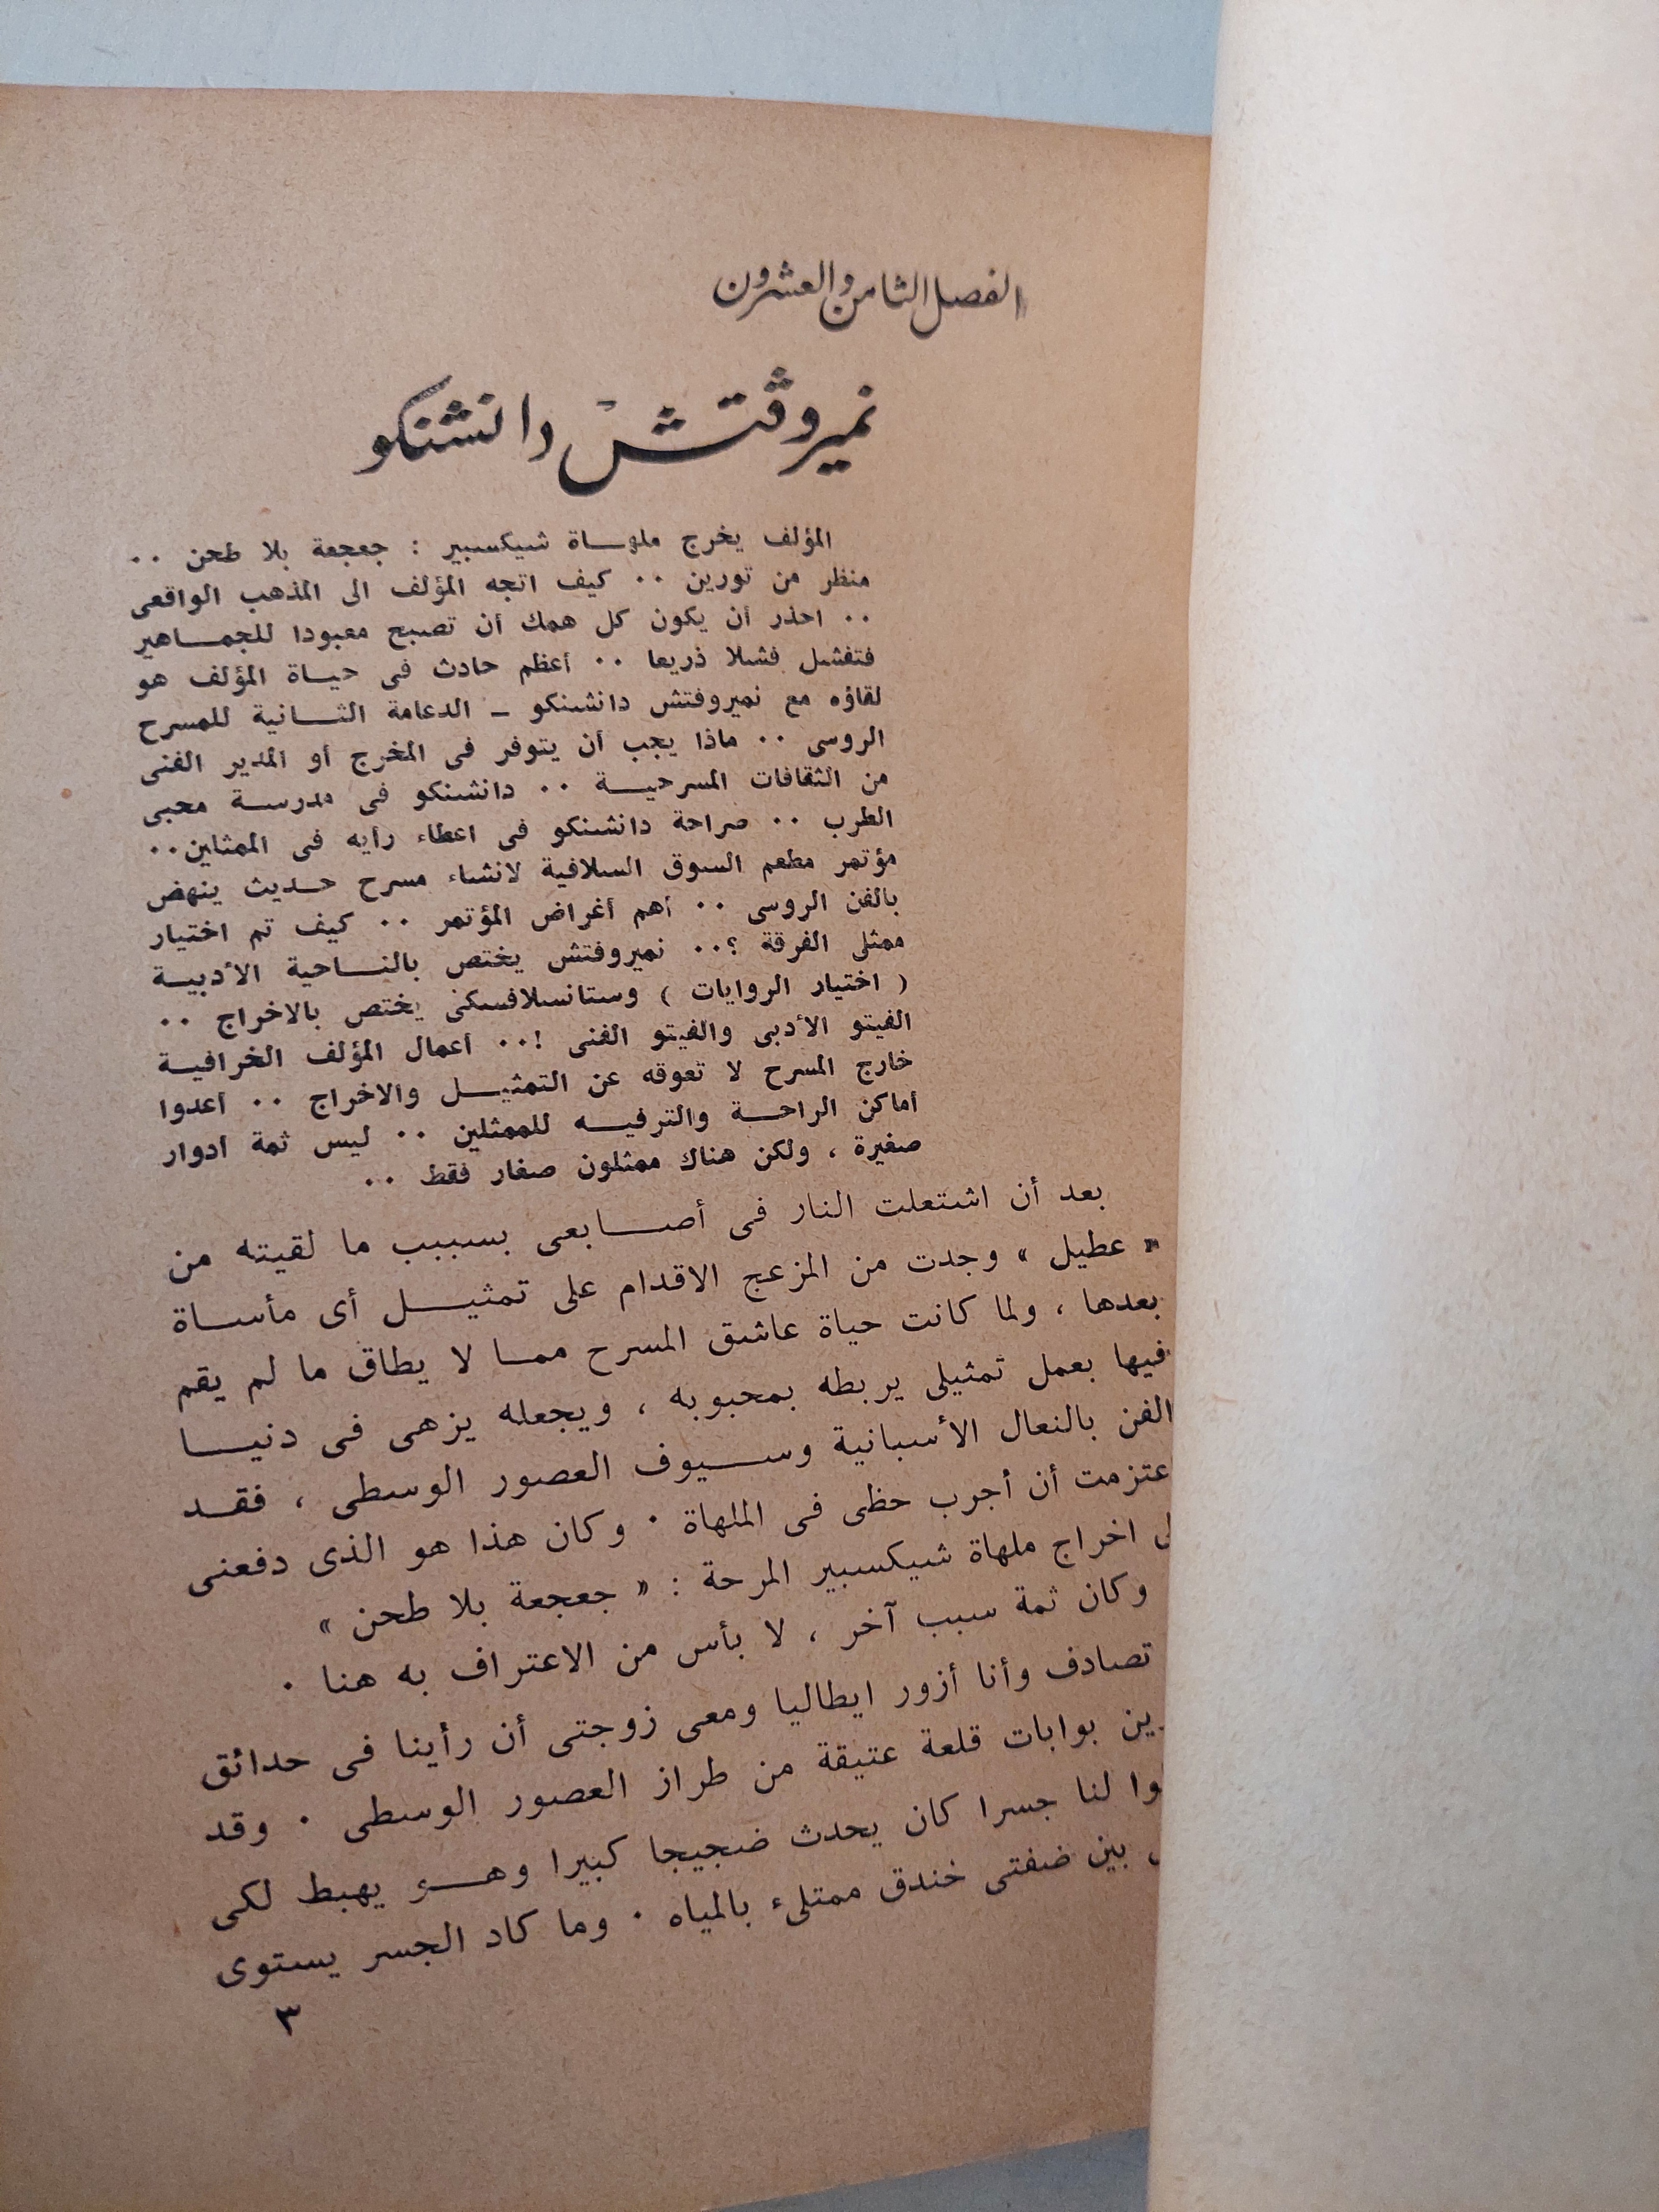 الفصل الثامن والعشرون
نميروڤتش دانشنكو
المؤلف يخرج ملهـاة شيكسبير : جعجعة بلا طحن ..
منظر من تورين .. كيف اتجه المؤلف الى المذهب الواقعى
.. احذر أن يكون كل همك أن تصبح معبودا للجمـاهير
فتفشل فشلا ذريعا .. أعظم حادث فى حيـاة المؤلف هو
لقاؤه مع نميروفتش دانشنكو ـ الدعامة الثـانية للمسرح
الروسى .. ماذا يجب أن يتوفر فى المخرج أو المدير الفنى
من الثقافات المسرحيـة .. دانشنكو فى مدرسـة محبى
الطرب .. صراحة دانشنكو فى اعطاء رأيه فى الممثلين..
مؤتمر مطعم السوق السلافية لانشاء مسرح حـديث ينهض
بالفن الروسى .. أهم أغراض المؤتمر .. كيف تم اختيار
ممثلى الفرقة ؟.. نميروفتش يختص بالنـاحية الأدبيـة
( اختيار الروايات ) وستانسلافسكى يختص بالاخراج ..
الفيتو الأدبى والفيتو الفنى !.. أعمال المؤلف الخرافيـة
خارج المسرح لا تعوقه عن التمثيـل والاخراج .. أعدوا
أماكن الراحـة والترفيـه للممثلين .. ليس ثمة أدوار
صغيرة ، ولكن هناك ممثلون صغار فقط ..
بعد أن اشتعلت النار فى أصـابعى بسببب ما لقيته من
« عطيل » وجدت من المزعج الاقدام على تمثيـل أى مأسـاة
بعدها ، ولما كانت حياة عاشق المسرح ممـا لا يطاق ما لم يقم
فيها بعمل تمثيلى يربطه بمحبوبه ، ويجعله يزهى فى دنيـا
الفن بالنعال الأسبانية وسـيوف العصور الوسطى ، فقـد
عتزمت أن أجرب حظى فى الملهاة . وكان هذا هو الذى دفعنى
اخراج ملهاة شيكسبير المرحة : « جعجعة بلا طحن »
وكان ثمة سبب آخر ، لا بأس من الاعتراف به هنا .
تصادف وأنا أزور ايطاليا ومعى زوجتى أن رأينا فى حدائق
رين بوابات قلعة عتيقة من طراز العصور الوسطى . وقد
وا لنا جسرا كان يحدث ضجيجا كبيرا وهـو يهبط لكى
بين ضفتى خندق ممتلىء بالمياه . وما كاد الجسر يستوى
٣